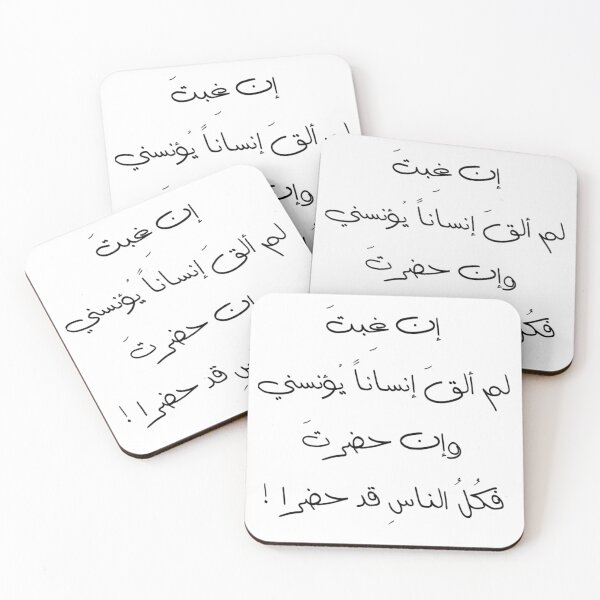 إن غبتَ
ألقَ إنسانَاً يُؤنسني
وإن
إن غبتَ
لم ألقَ إنسانَاً يُؤنسني
وإن حضرتَ
إن غبتَ
لم ألقَ إنسانَاً يُؤنسني
حضرتَ
قد حضرا !
إن غبتَ
لم ألقَ إنسانَاً يُؤنسني
وإن حضرتَ
فكُلُ الناسِ قد حضرا !